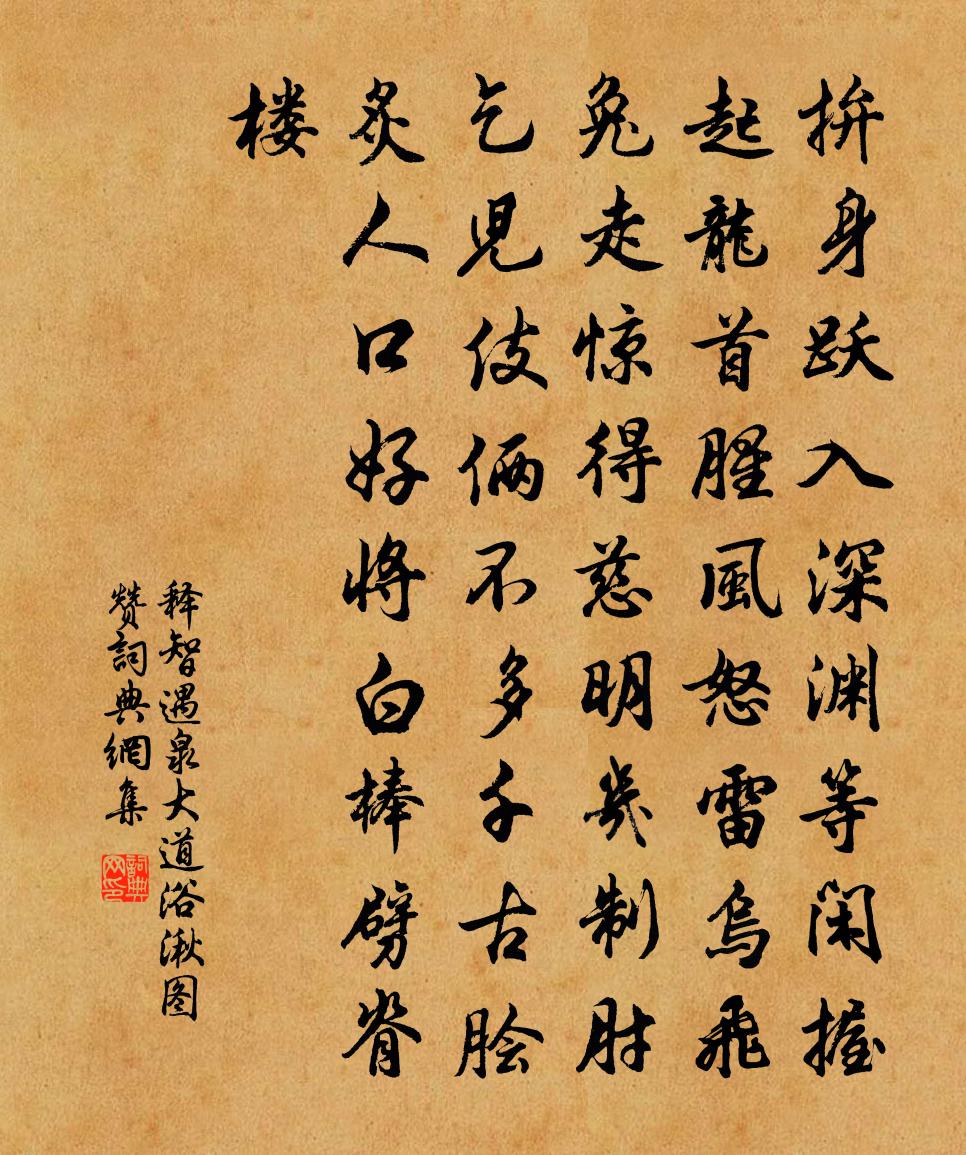 拚身跃入深渊等闲握
起龍首腥風怒雷烏飛
兔走惊得慈明幾制肘
乞児伎俩不多千古脍
炙人口好将白棒劈脊
楼
释智遇泉大道浴湫图
赞詞典網集
詞典网印